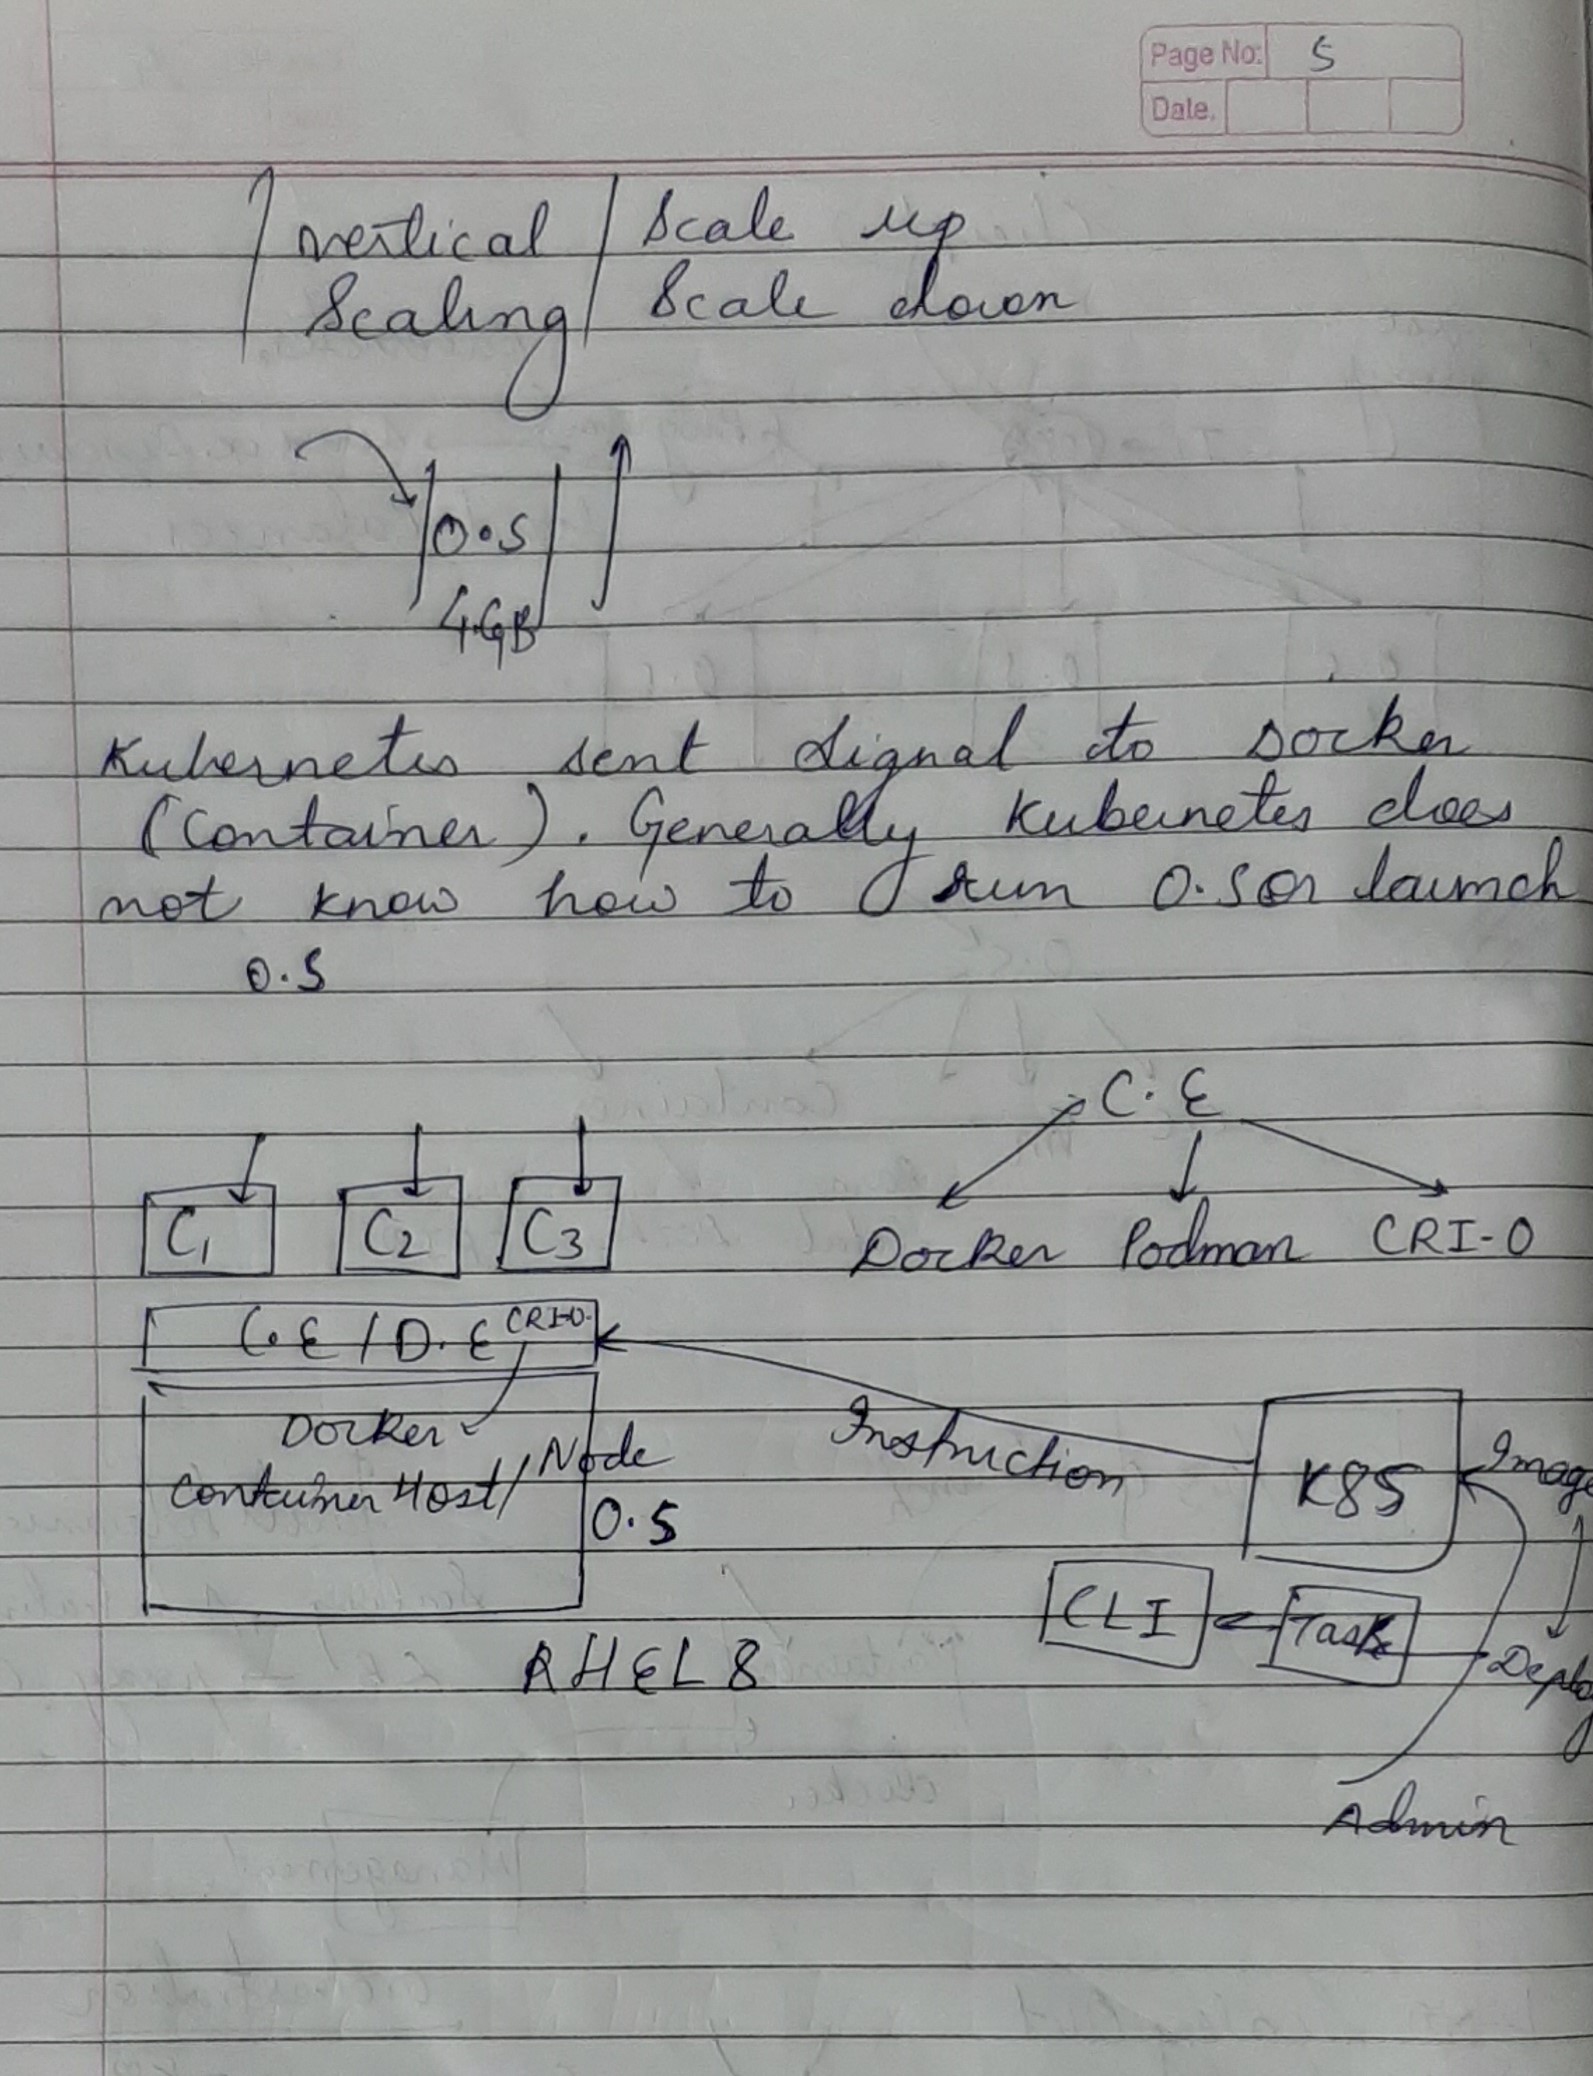 Page No: 5
Date.
vertical Scale up
Scaling Scale down
O.S
4.GB
Kubernetes sent signal to Docker
(Container). Generally Kubernetes does
not know how to run O.S or launch
O.S
C.E
C1 C2 C3
Docker Podman CRI-O
C.E / D.E CRI-O.
Docker
Container Host/ Node
O.S
Instruction
K8S
Image
CLI
Task
RHEL 8
Admin